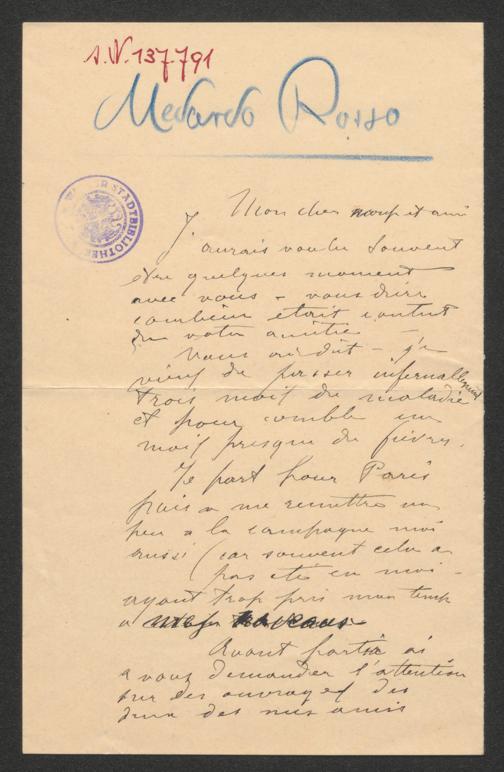 s.N. 137.791
Medardo Rosso
WIENER STADTBIBLIOTHEK
Mon cher et ami
J'aurais voulu souvent
être quelques moment
avec vous - vous dire
combien etait contut
de votre amitié -
Vous dit - j'e
viens de passer infernallement
trois mois de maladie
et pour comble un
mois presque de fievres.
Je part pour Paris
puis a me remettre un
peu a la campagne moi
aussi (car souvent cela a
pas eté en moi -
ayant trop pris mon temp
a mes travaux
Avant partir ai
a vous demander l'attention
sur des ouvrages des
deux des mes amis